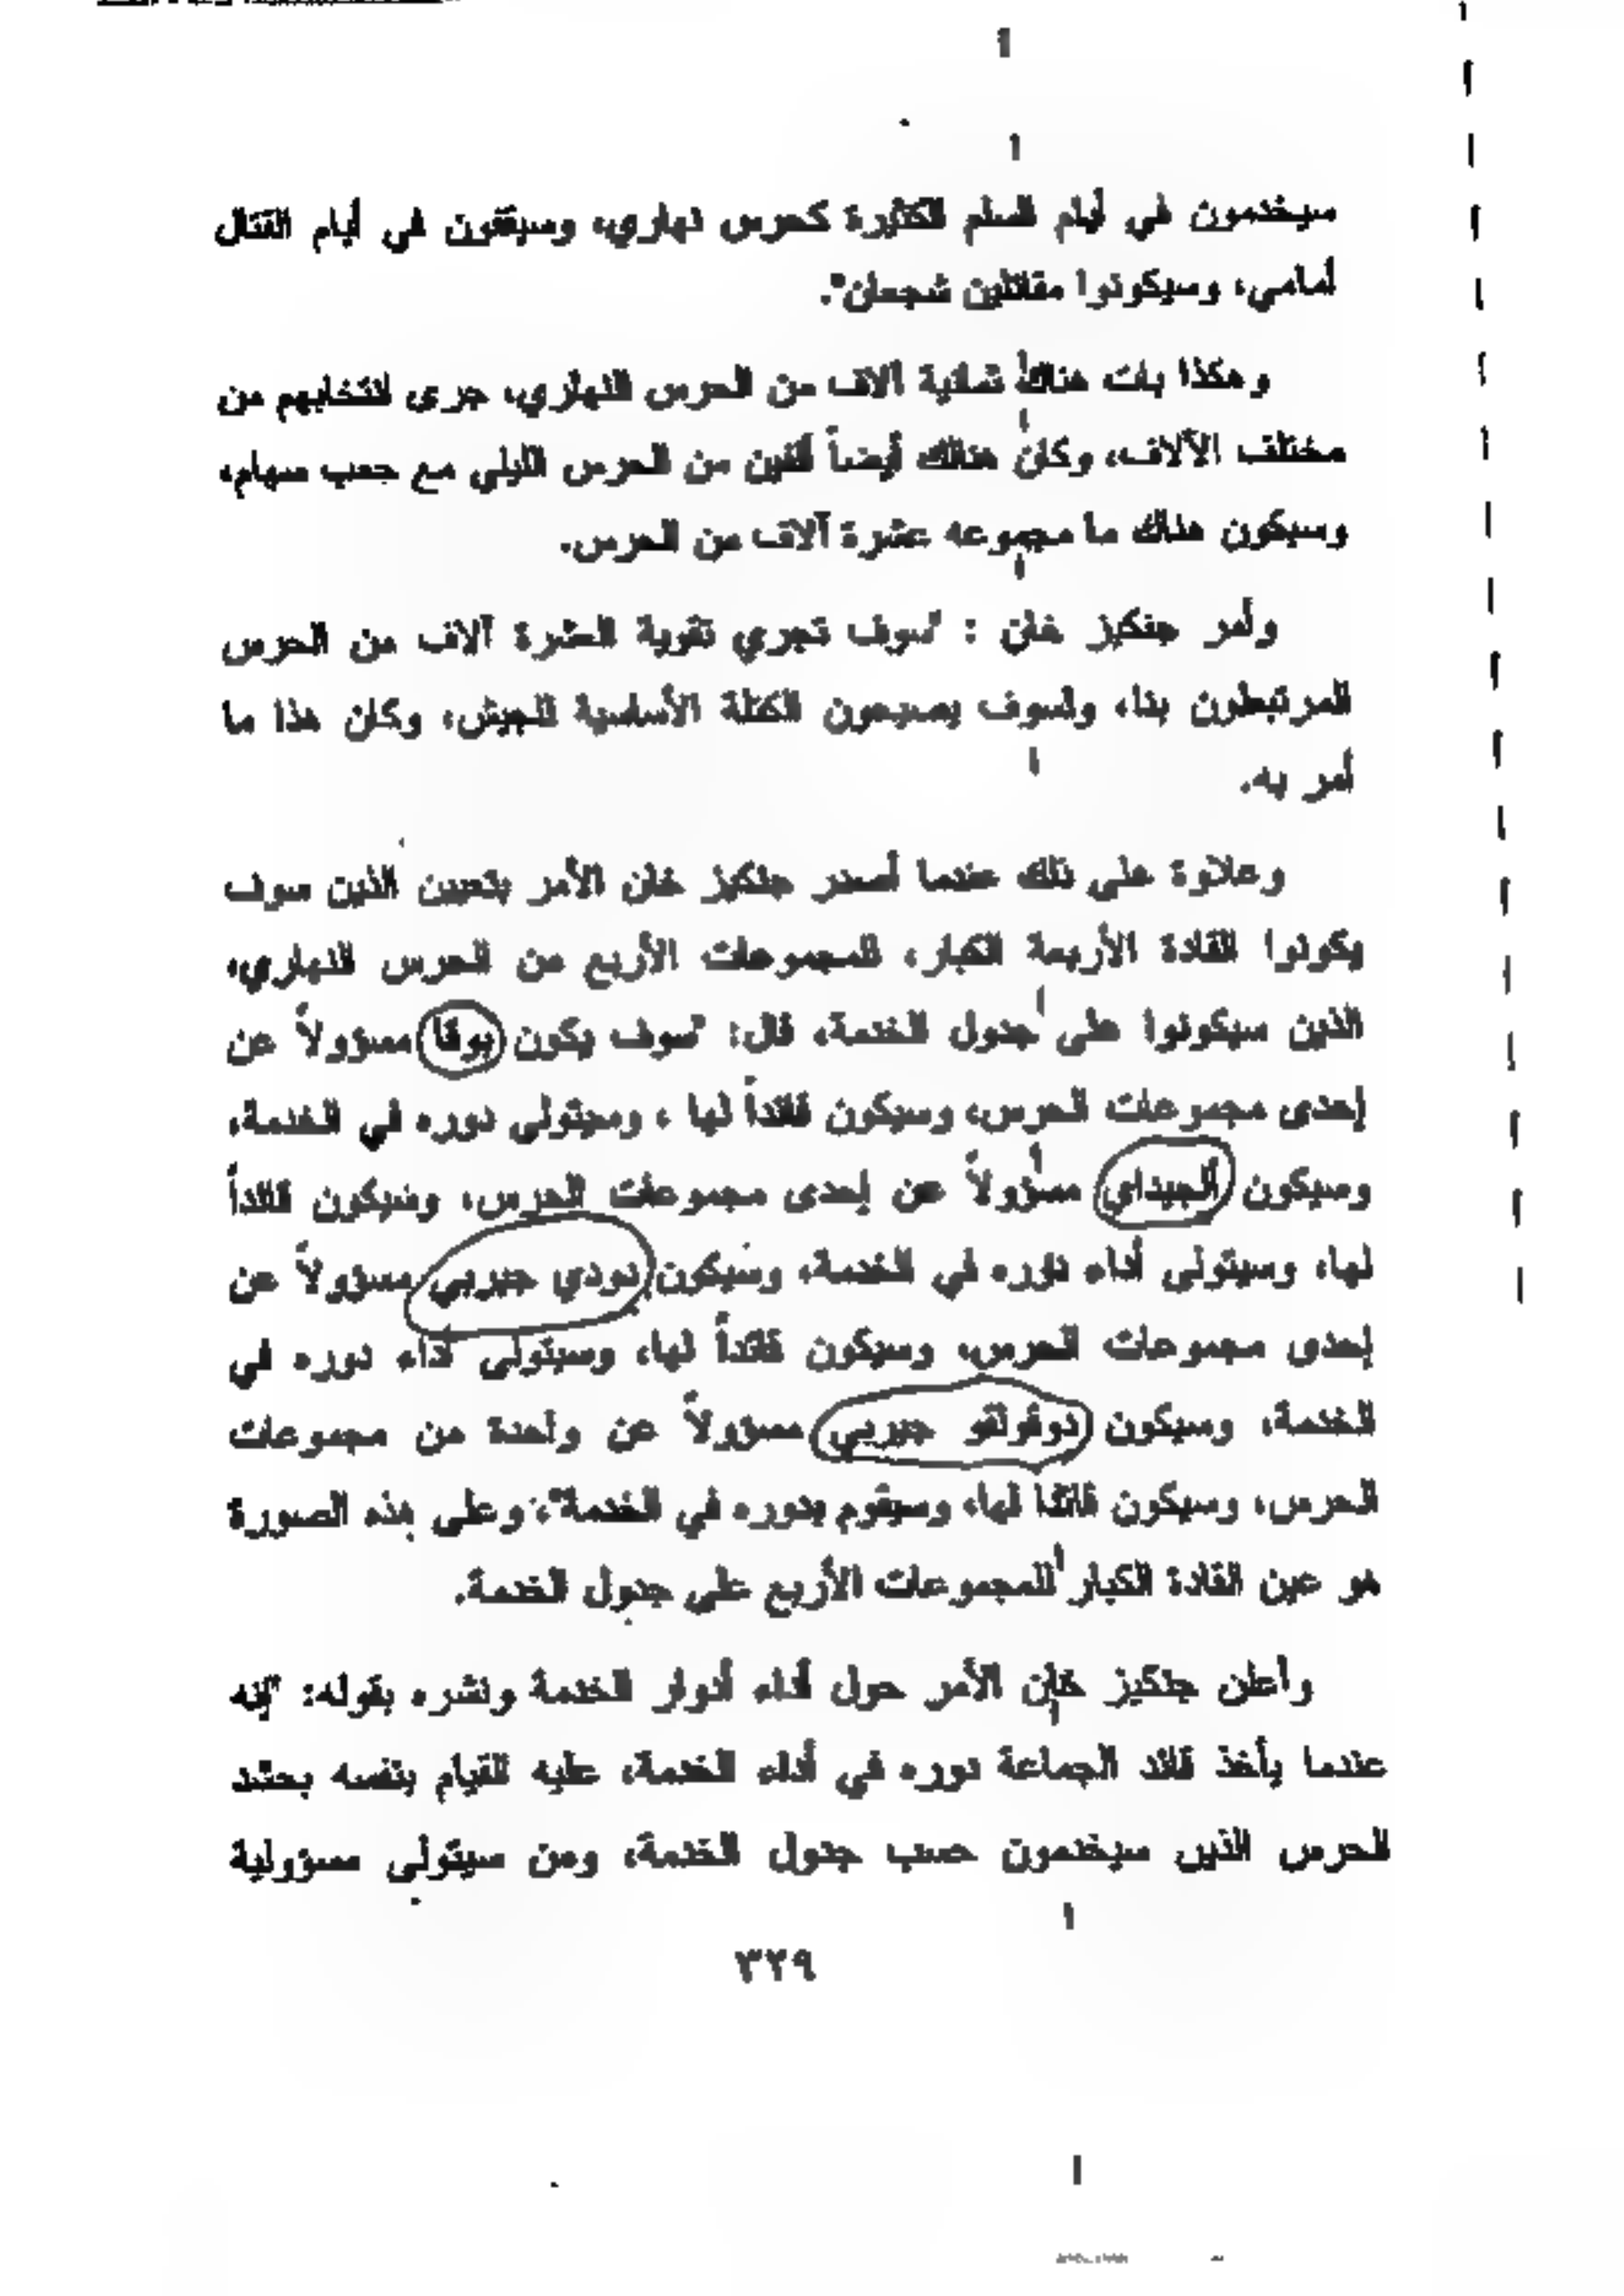 سيخدمون في أيام السلم الكثيرة كحرس نهاري، وسيقفون في أيام القتال
أمامي، وسيكونوا مقاتلين شجعان".
وهكذا بات هناك ثمانية آلاف من الحرس النهاري، جرى انتخابهم من
مختلف الآلاف، وكان هنالك أيضاً ألفين من الحرس الليلي مع جعب سهام،
وسيكون هناك ما مجموعه عشرة آلاف من الحرس.
وأمر جنكيز خان : "سوف تجري تقوية العشرة آلاف من الحرس
المرتبطون بنا، ولسوف يصبحون الكتلة الأساسية للجيش، وكان هذا ما
أمر به.
وعلاوة على ذلك عندما أصدر جنكيز خان الأمر بتعيين الذين سوف
يكونوا القادة الأربعة الكبار، للمجموعات الأربع من الحرس النهاري،
الذين سيكونوا على جدول الخدمة، قال: "سوف يكون بوقا مسؤولاً عن
إحدى مجموعات الحرس، وسيكون قائداً لها ، وسيتولى دوره في الخدمة،
وسيكون ألجيداي مسؤولاً عن إحدى مجموعات الحرس، وسيكون قائداً
لها، وسيتولى أداء دوره في الخدمة، وسيكون دودي جيربي مسؤولاً عن
إحدى مجموعات الحرس، وسيكون قائداً لها، وسيتولى أداء دوره في
الخدمة، وسيكون دوقولقو جيربي مسؤولاً عن واحدة من مجموعات
الحرس، وسيكون قائدا لها، وسيقوم بدوره في الخدمة"، وعلى هذه الصورة
هو عين القادة الكبار للمجموعات الأربع على جدول الخدمة.
وأعلن جنكيز خان الأمر حول أداء أدوار الخدمة ونشره بقوله: "إنه
عندما يأخذ قائد الجماعة دوره في أداء الخدمة، عليه القيام بنفسه بحشد
الحرس الذين سيخدمون حسب جدول الخدمة، ومن سيتولى مسؤولية
٣٢٩